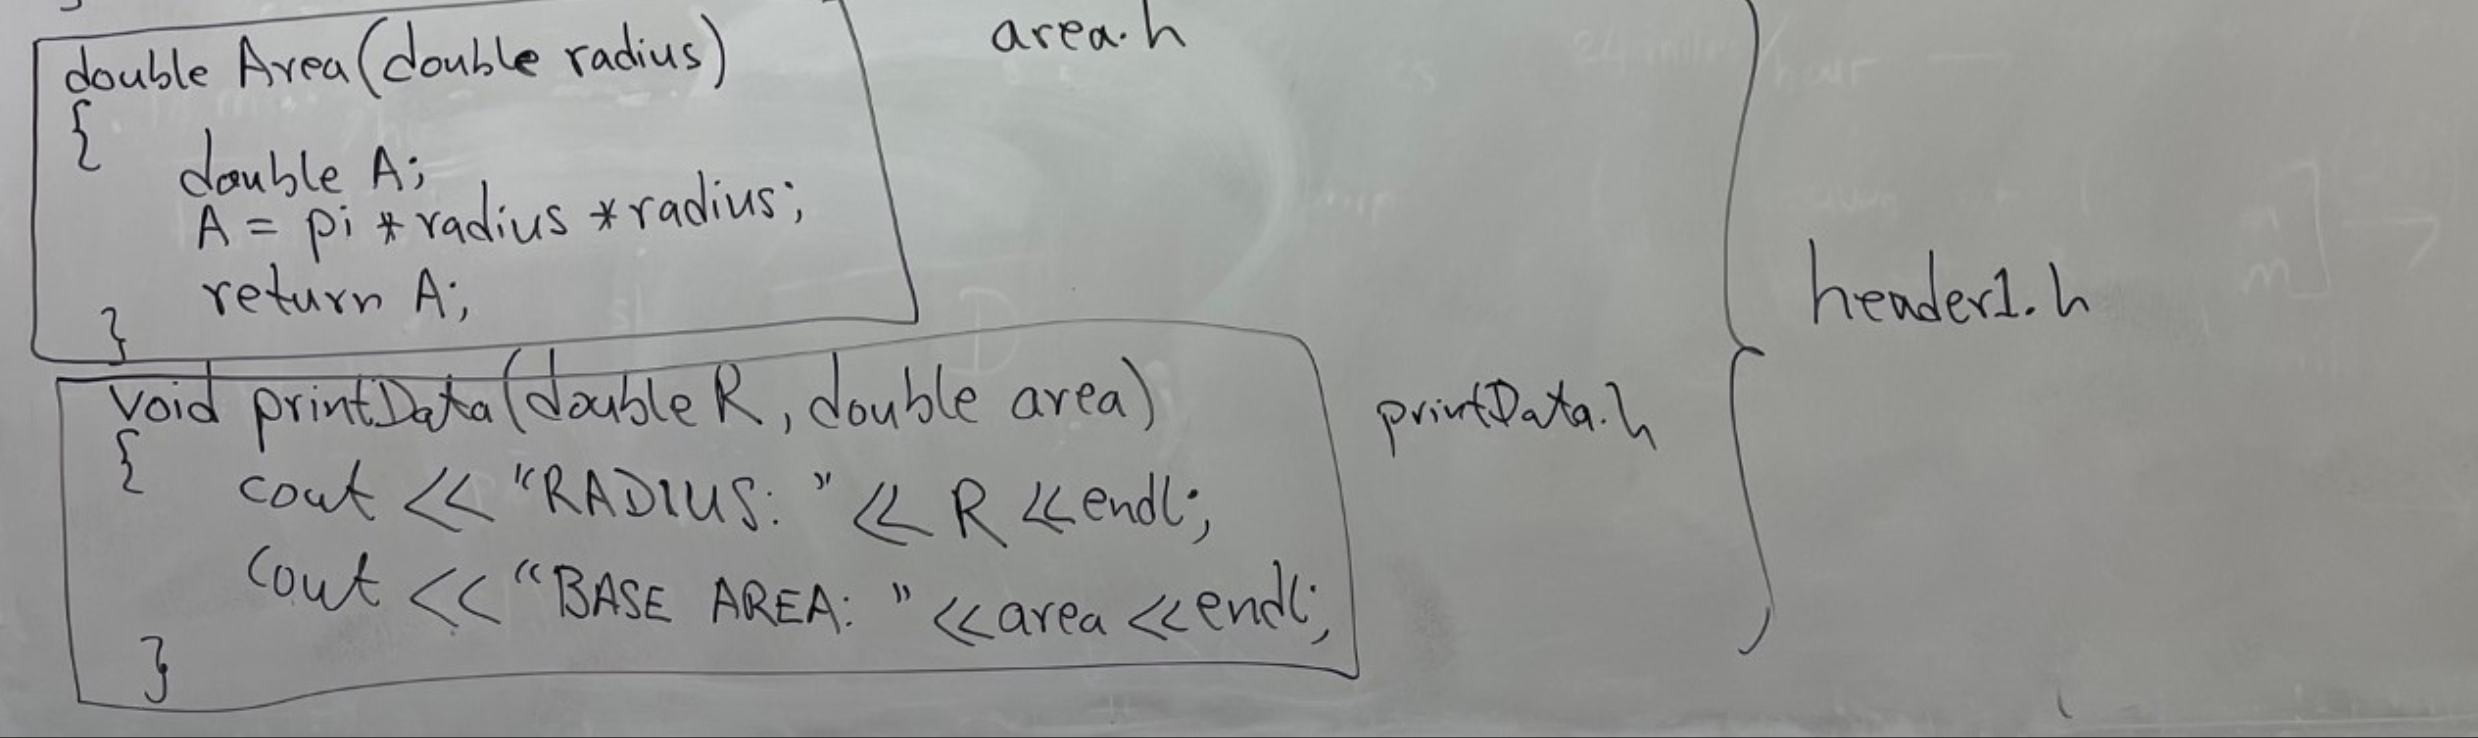 double Area(double radius)
area.h
{
double A;
A = pi * radius * radius;
return A;
}
header1.h
void printData(double R, double area)
printData.h
{
cout << "RADIUS: " << R << endl;
cout << "BASE AREA: " << area << endl;
}